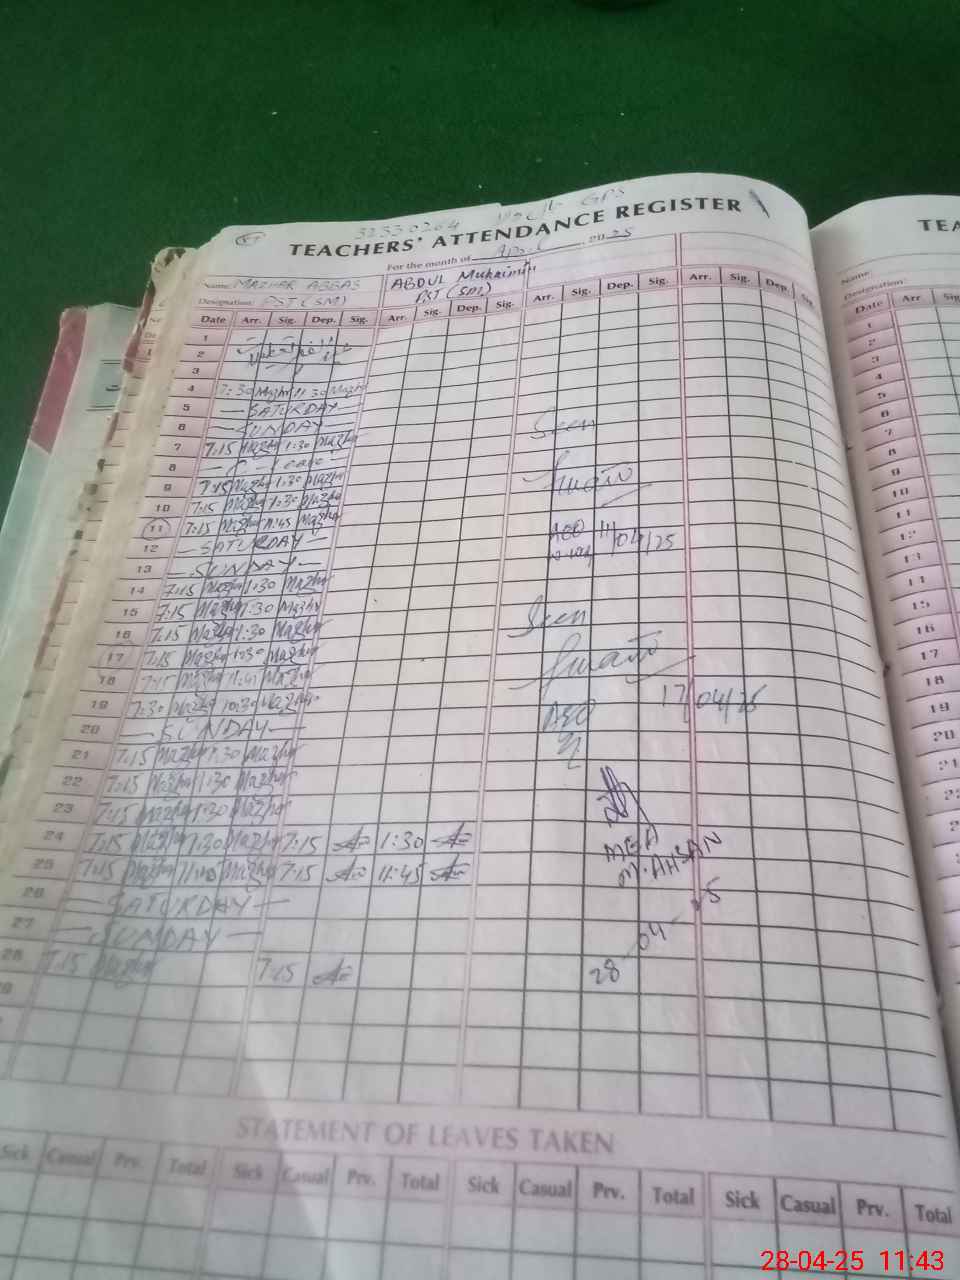 32330264 GPS
TEACHERS' ATTENDANCE REGISTER
For the month of April 2025
Name: MAZHAR ABBAS ABDUL Muhaimin
Designation: PST (SM) PST (SM)
Date Arr. Sig. Dep. Sig. Arr. Sig. Dep. Sig. Arr. Sig. Dep. Sig. Arr. Sig. Dep. Sig.
1
2
3
4 7:30 Mazhr 11:30 Mazhr
5 — SATURDAY —
6 — SUNDAY —
7 7:15 Mazhr 1:30 Mazhr
8 — C - Leave —
Seen
9 7:15 Mazhr 1:30 Mazhr
10 7:15 Mazhr 1:30 Mazhr
11 7:15 Mazhr 11:45 Mazhr
12 — SATURDAY — AEO 11/04/25
13 — SUNDAY —
14 7:15 Mazhr 1:30 Mazhr
15 7:15 Mazhr 1:30 Mazhr
16 7:15 Mazhr 1:30 Mazhr Seen
17 7:15 Mazhr 1:30 Mazhr
18 7:15 Mazhr 11:45 Mazhr
19 7:30 Mazhr 10:30 Mazhr 17/04/25
20 — SUNDAY — AEO
21 7:15 Mazhr 1:30 Mazhr
22 7:15 Mazhr 1:30 Mazhr
23 7:15 Mazhr 1:30 Mazhr
24 7:15 Mazhr 1:30 Mazhr 7:15 1:30 MEA
25 7:15 Mazhr 11:45 Mazhr 7:15 11:45 M. AHSAN
26 — SATURDAY —
27 — SUNDAY —
28 7:15 Mazhr 7:15 28 04 25
STATEMENT OF LEAVES TAKEN
Sick Casual Prv. Total Sick Casual Prv. Total Sick Casual Prv. Total Sick Casual Prv. Total
TEA
Name:
Designation:
Date Arr. Sig
1
2
3
4
5
6
7
8
9
10
11
12
13
14
15
16
17
18
19
20
21
22
23
28-04-25 11:43